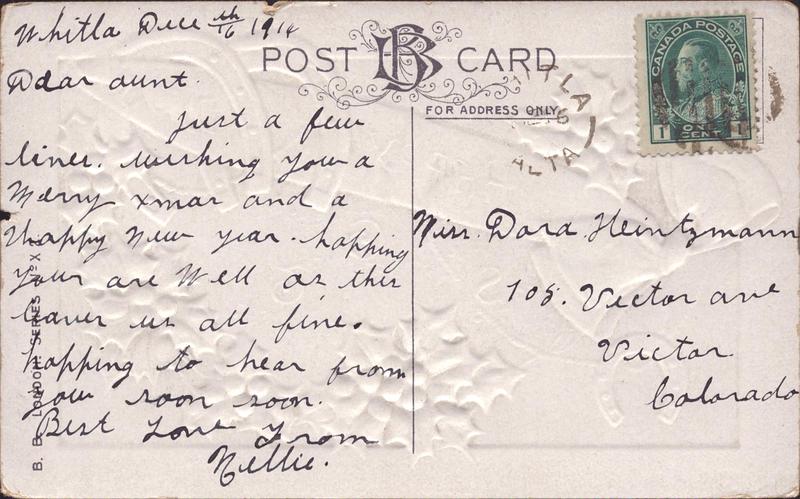 Whitla Dec 16th 191
POST CARD
Dear aunt.
FOR ADDRESS ONLY
Just a few
lines. wishing you a
Merry xmas and a
Happy New year. hopping
your are well as this
leaves us all fine.
hopping to hear from
you soon soon.
Best Love from
Nellie.
CANADA POSTAGE
1 ONE CENT 1
ALTA
Miss. Dora Heintzmann
105. Victor ave
Victor.
Colorado
B. B. LONDON. SERIES No X